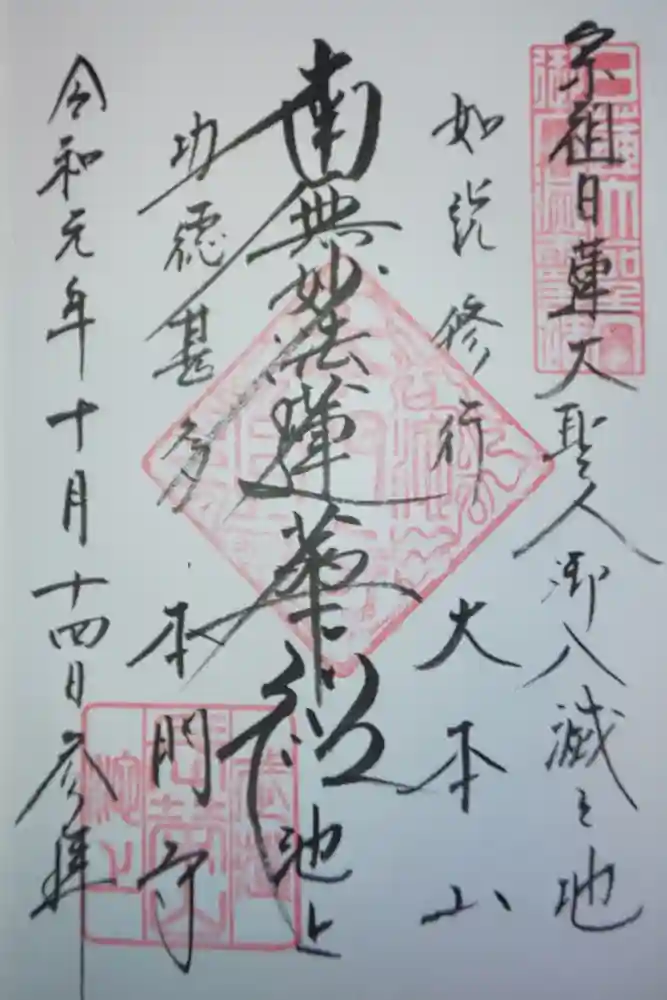 宗祖日蓮大聖人御入滅之地
如説修行
大本山
南無妙法蓮華経
池上
功徳甚多
本門寺
令和元年十月十四日参拝